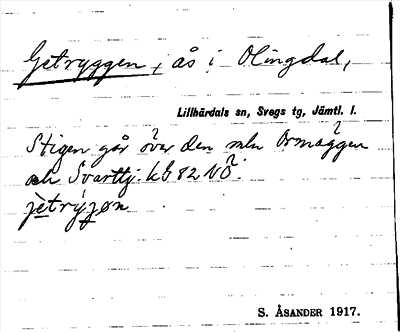 Getryggen, ås i Olingdal,
Lillhärdals sn, Svegs tg, Jämtl. l.
Stigen går över den mln Ormäggen
och Svarttj. kb 82 NÖ.
jetrýjøn
S. ÅSANDER 1917.